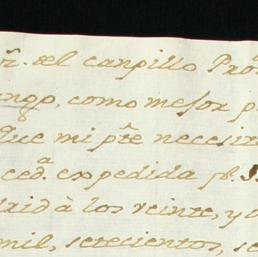 r. del canpillo Pro
ngo, como mejor p
Que mi pte necesit
ced.ª expedida pr. S
rid à los veinte, y o
mil, setecientos, se